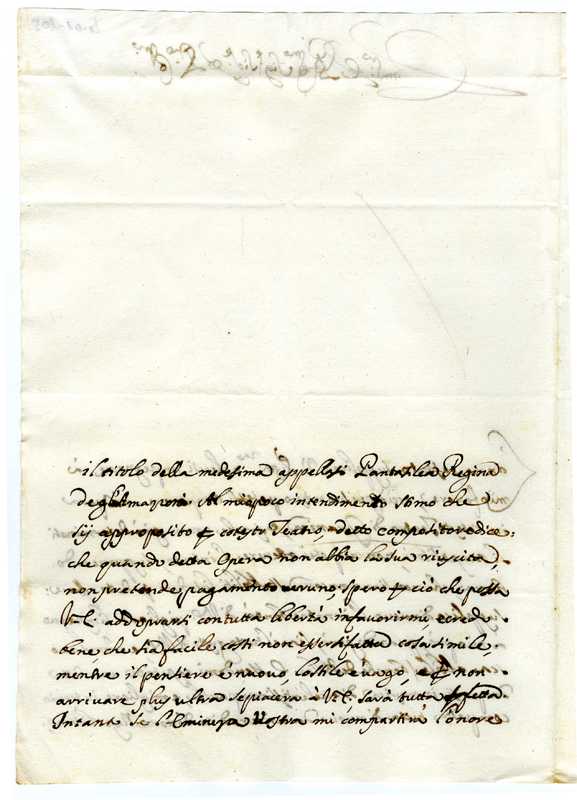 il titolo della medesima appellasi Pantasilea Regina
degl'Amazoni Al mio poco intendimento stimo che
sij approposito p cotesto Teatro, detto compositore dice:
che quando detta Opera non abbia la sua riuscita,
non pretende pagamento veruno, spero p ciò che possa
V.E. addoprarsi con tutta libertà, in favorirmi, e cred
bene, che sia facile costi non essersi fatta cosa simile.
mentre il pensiere è nuovo, lo stile è vago, e p non
arrivare plus ultra se piacerà à V.E. sarà tutta
Intant se l'Eminenza Vostra mi compartirà l'onore